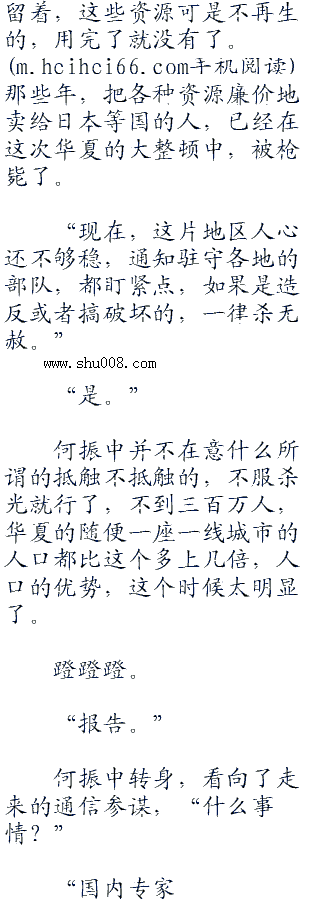 留着，这些资源可是不再生
的，用完了就没有了。
(m.hcihci66.com手机阅读)
那些年，把各种资源廉价地
卖给日本等国的人，已经在
这次华夏的大整顿中，被枪
毙了。
“现在，这片地区人心
还不够稳，通知驻守各地的
部队，都盯紧点，如果是造
反或者搞破坏的，一律杀无
赦。”
www.shu008.com
“是。”
何振中并不在意什么所
谓的抵触不抵触的，不服杀
光就行了，不到三百万人，
华夏的随便一座一线城市的
人口都比这个多上几倍，人
口的优势，这个时候太明显
了。
蹬蹬蹬。
“报告。”
何振中转身，看向了走
来的通信参谋，“什么事
情？”
“国内专家